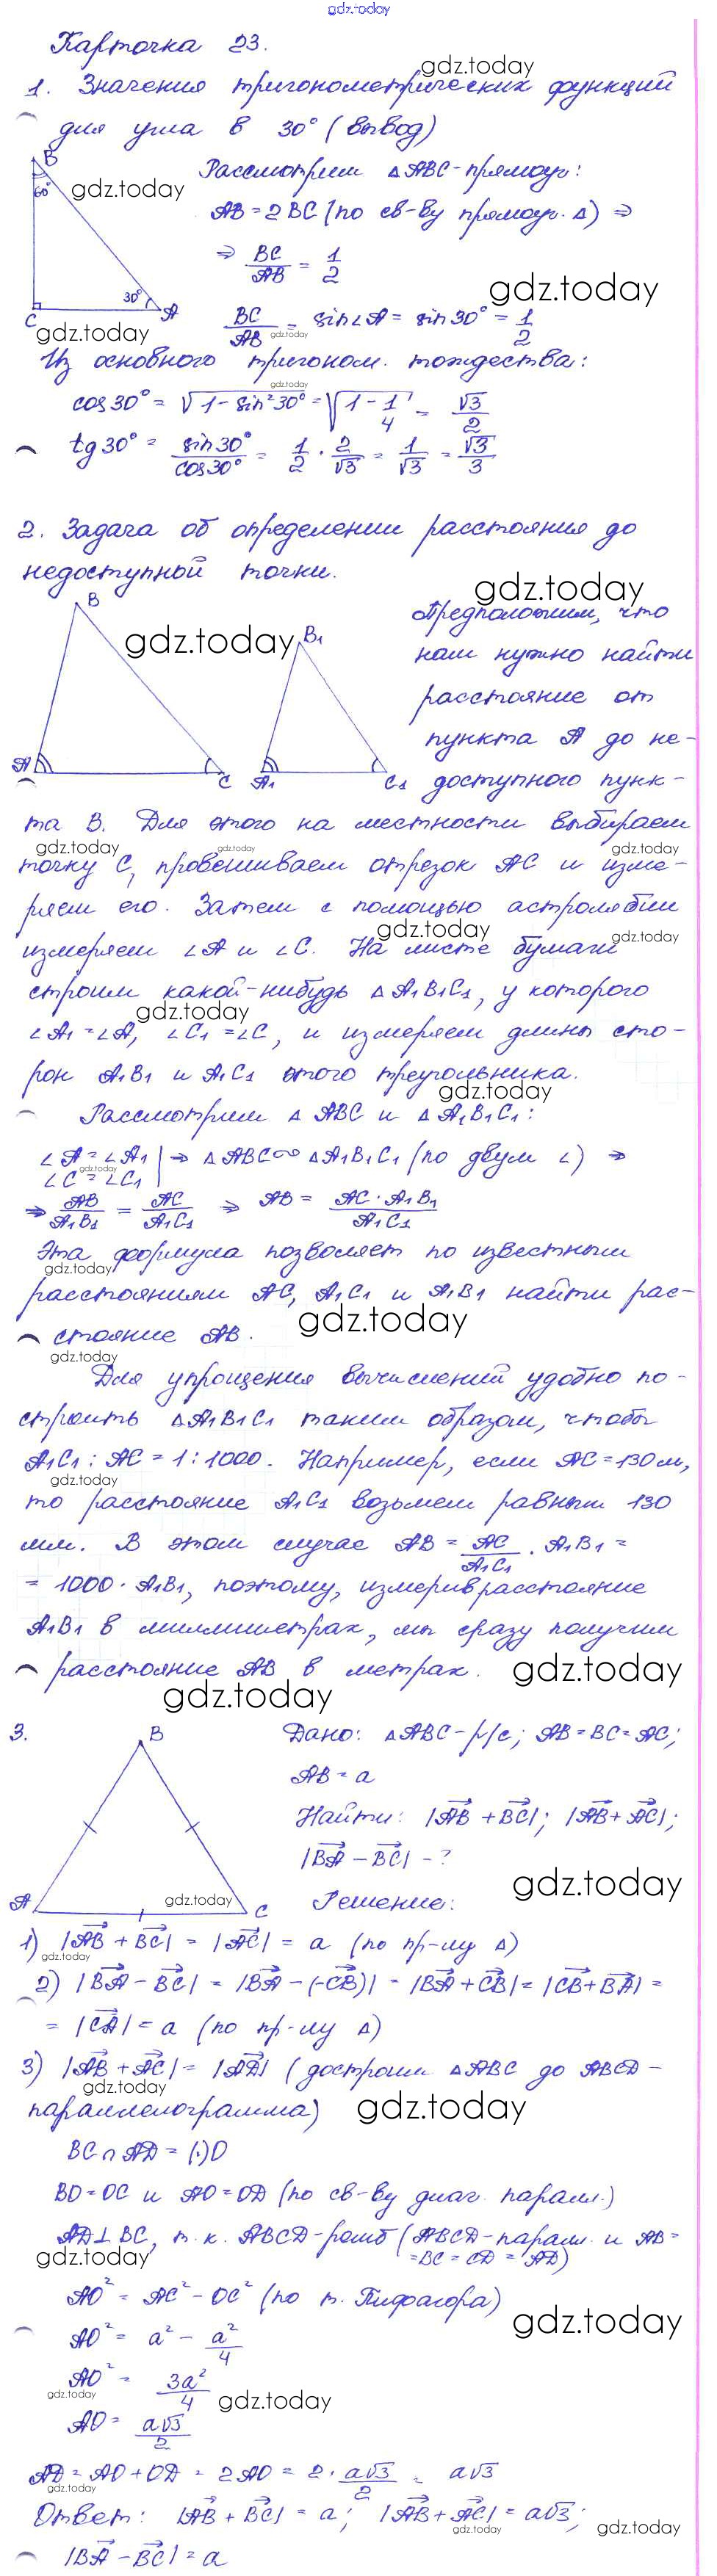 gdz.today
Карточка 23.
1. Значения тригонометрических функций
для угла в 30° (вывод)
Рассмотрим △ABC - прямоуг:
AB = 2BC (по св-ву прямоуг. △) ⇒
⇒ BC/AB = 1/2
BC/AB = sin∠A = sin30° = 1/2
B
60°
30°
C
A
Из основного тригоном. тождества:
cos30° = √(1-sin²30°) = √(1-1/4) = √3/2
tg30° = sin30°/cos30° = 1/2 · 2/√3 = 1/√3 = √3/3
2. Задача об определении расстояния до
недоступной точки.
B
B1
A
C
A1
C1
Предположим, что
нам нужно найти
расстояние от
пункта A до не-
доступного пунк-
та B. Для этого на местности выбираем
точку C, провешиваем отрезок AC и изме-
ряем его. Затем с помощью астролябии
измеряем ∠A и ∠C. На листе бумаги
строим какой-нибудь △A1B1C1, у которого
∠A1 = ∠A, ∠C1 = ∠C, и измеряем длины сто-
рон A1B1 и A1C1 этого треугольника.
Рассмотрим △ABC и △A1B1C1:
∠A = ∠A1 | ⇒ △ABC∞△A1B1C1 (по двум ∠) ⇒
∠C = ∠C1
⇒ AB/A1B1 = AC/A1C1 ⇒ AB = AC · A1B1/A1C1
Эта формула позволяет по известным
расстояниям AC, A1C1 и A1B1 найти рас-
стояние AB.
Для упрощения вычислений удобно по-
строить △A1B1C1 таким образом, чтобы
A1C1 : AC = 1 : 1000. Например, если AC = 130 м,
то расстояние A1C1 возьмем равным 130
мм. В этом случае AB = AC/A1C1 · A1B1 =
= 1000 · A1B1, поэтому, измерив расстояние
A1B1 в миллиметрах, мы сразу получим
расстояние AB в метрах.
3.
B
A
C
Дано: △ABC - р/с; AB = BC = AC;
AB = a
Найти: |AB + BC|; |AB + AC|;
|BA - BC| - ?
Решение:
1) |AB + BC| = |AC| = a (по пр-лу △)
2) |BA - BC| = |BA - (-CB)| = |BA + CB| = |CB + BA| =
= |CA| = a (по пр-лу △)
3) |AB + AC| = |AD| (достроим △ABC до ABCD -
параллелограмма)
BC ∩ AD = (·)O
BO = OC и AO = OD (по св-ву диаг. паралл.)
AD ⊥ BC, т.к. ABCD - ромб (ABCD - паралл. и AB =
= BC = CD = AD)
AO² = AC² - OC² (по т. Пифагора)
AO² = a² - a²/4
AO² = 3a²/4
AO = a√3/2
AD = AO + OD = 2AO = 2 · a√3/2 = a√3
Ответ: |AB + BC| = a; |AB + AC| = a√3;
|BA - BC| = a